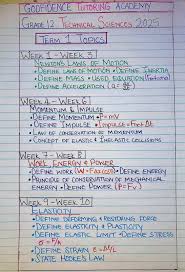 GODFIDENCE TUTORING ACADEMY
GRADE 12 TECHNICAL SCIENCES 2025
TERM 1 TOPICS
WEEK 1 - WEEK 3
NEWTON'S LAWS OF MOTION
• DEFINE LAWS OF MOTION • DEFINE INERTIA
• DEFINE MASS • USED EQUATION
• DEFINE ACCELERATION
WEEK 4 - WEEK 6
MOMENTUM & IMPULSE
• DEFINE MOMENTUM • P=mv
• DEFINE IMPULSE • IMPULSE=FnetΔt
• LAW OF CONSERVATION OF MOMENTUM
• CONCEPT OF ELASTIC & INELASTIC COLLISIONS
WEEK 7 - WEEK 8
WORK, ENERGY & POWER
• DEFINE WORK • DEFINE ENERGY
• PRINCIPLE OF CONSERVATION OF MECHANICAL
ENERGY • DEFINE POWER (P=Fv)
WEEK 9 - WEEK 10
ELASTICITY
• DEFINE DEFORMING & RESTORING FORCE
• DEFINE ELASTICITY & PLASTICITY
• DEFINE ELASTIC LIMIT • DEFINE STRESS
σ=F/A
• DEFINE STRAIN ε=ΔL/L
• STATE HOOKE'S LAW